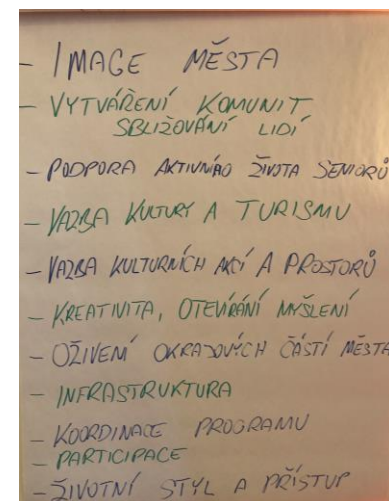 - IMAGE MĚSTA
- VYTVÁŘENÍ KOMUNIT
SBLIŽOVÁNÍ LIDÍ
- PODPORA AKTIVNÍHO ŽIVOTA SENIORŮ
- VAZBA KULTURY A TURISMU
- VAZBA KULTURNÍCH AKCÍ A PROSTORŮ
- KREATIVITA, OTEVÍRÁNÍ MYŠLENÍ
- OŽIVENÍ OKRAJOVÝCH ČÁSTÍ MĚSTA
- INFRASTRUKTURA
- KOORDINACE PROGRAMU
- PARTICIPACE
- ŽIVOTNÍ STYL A PŘÍSTUP